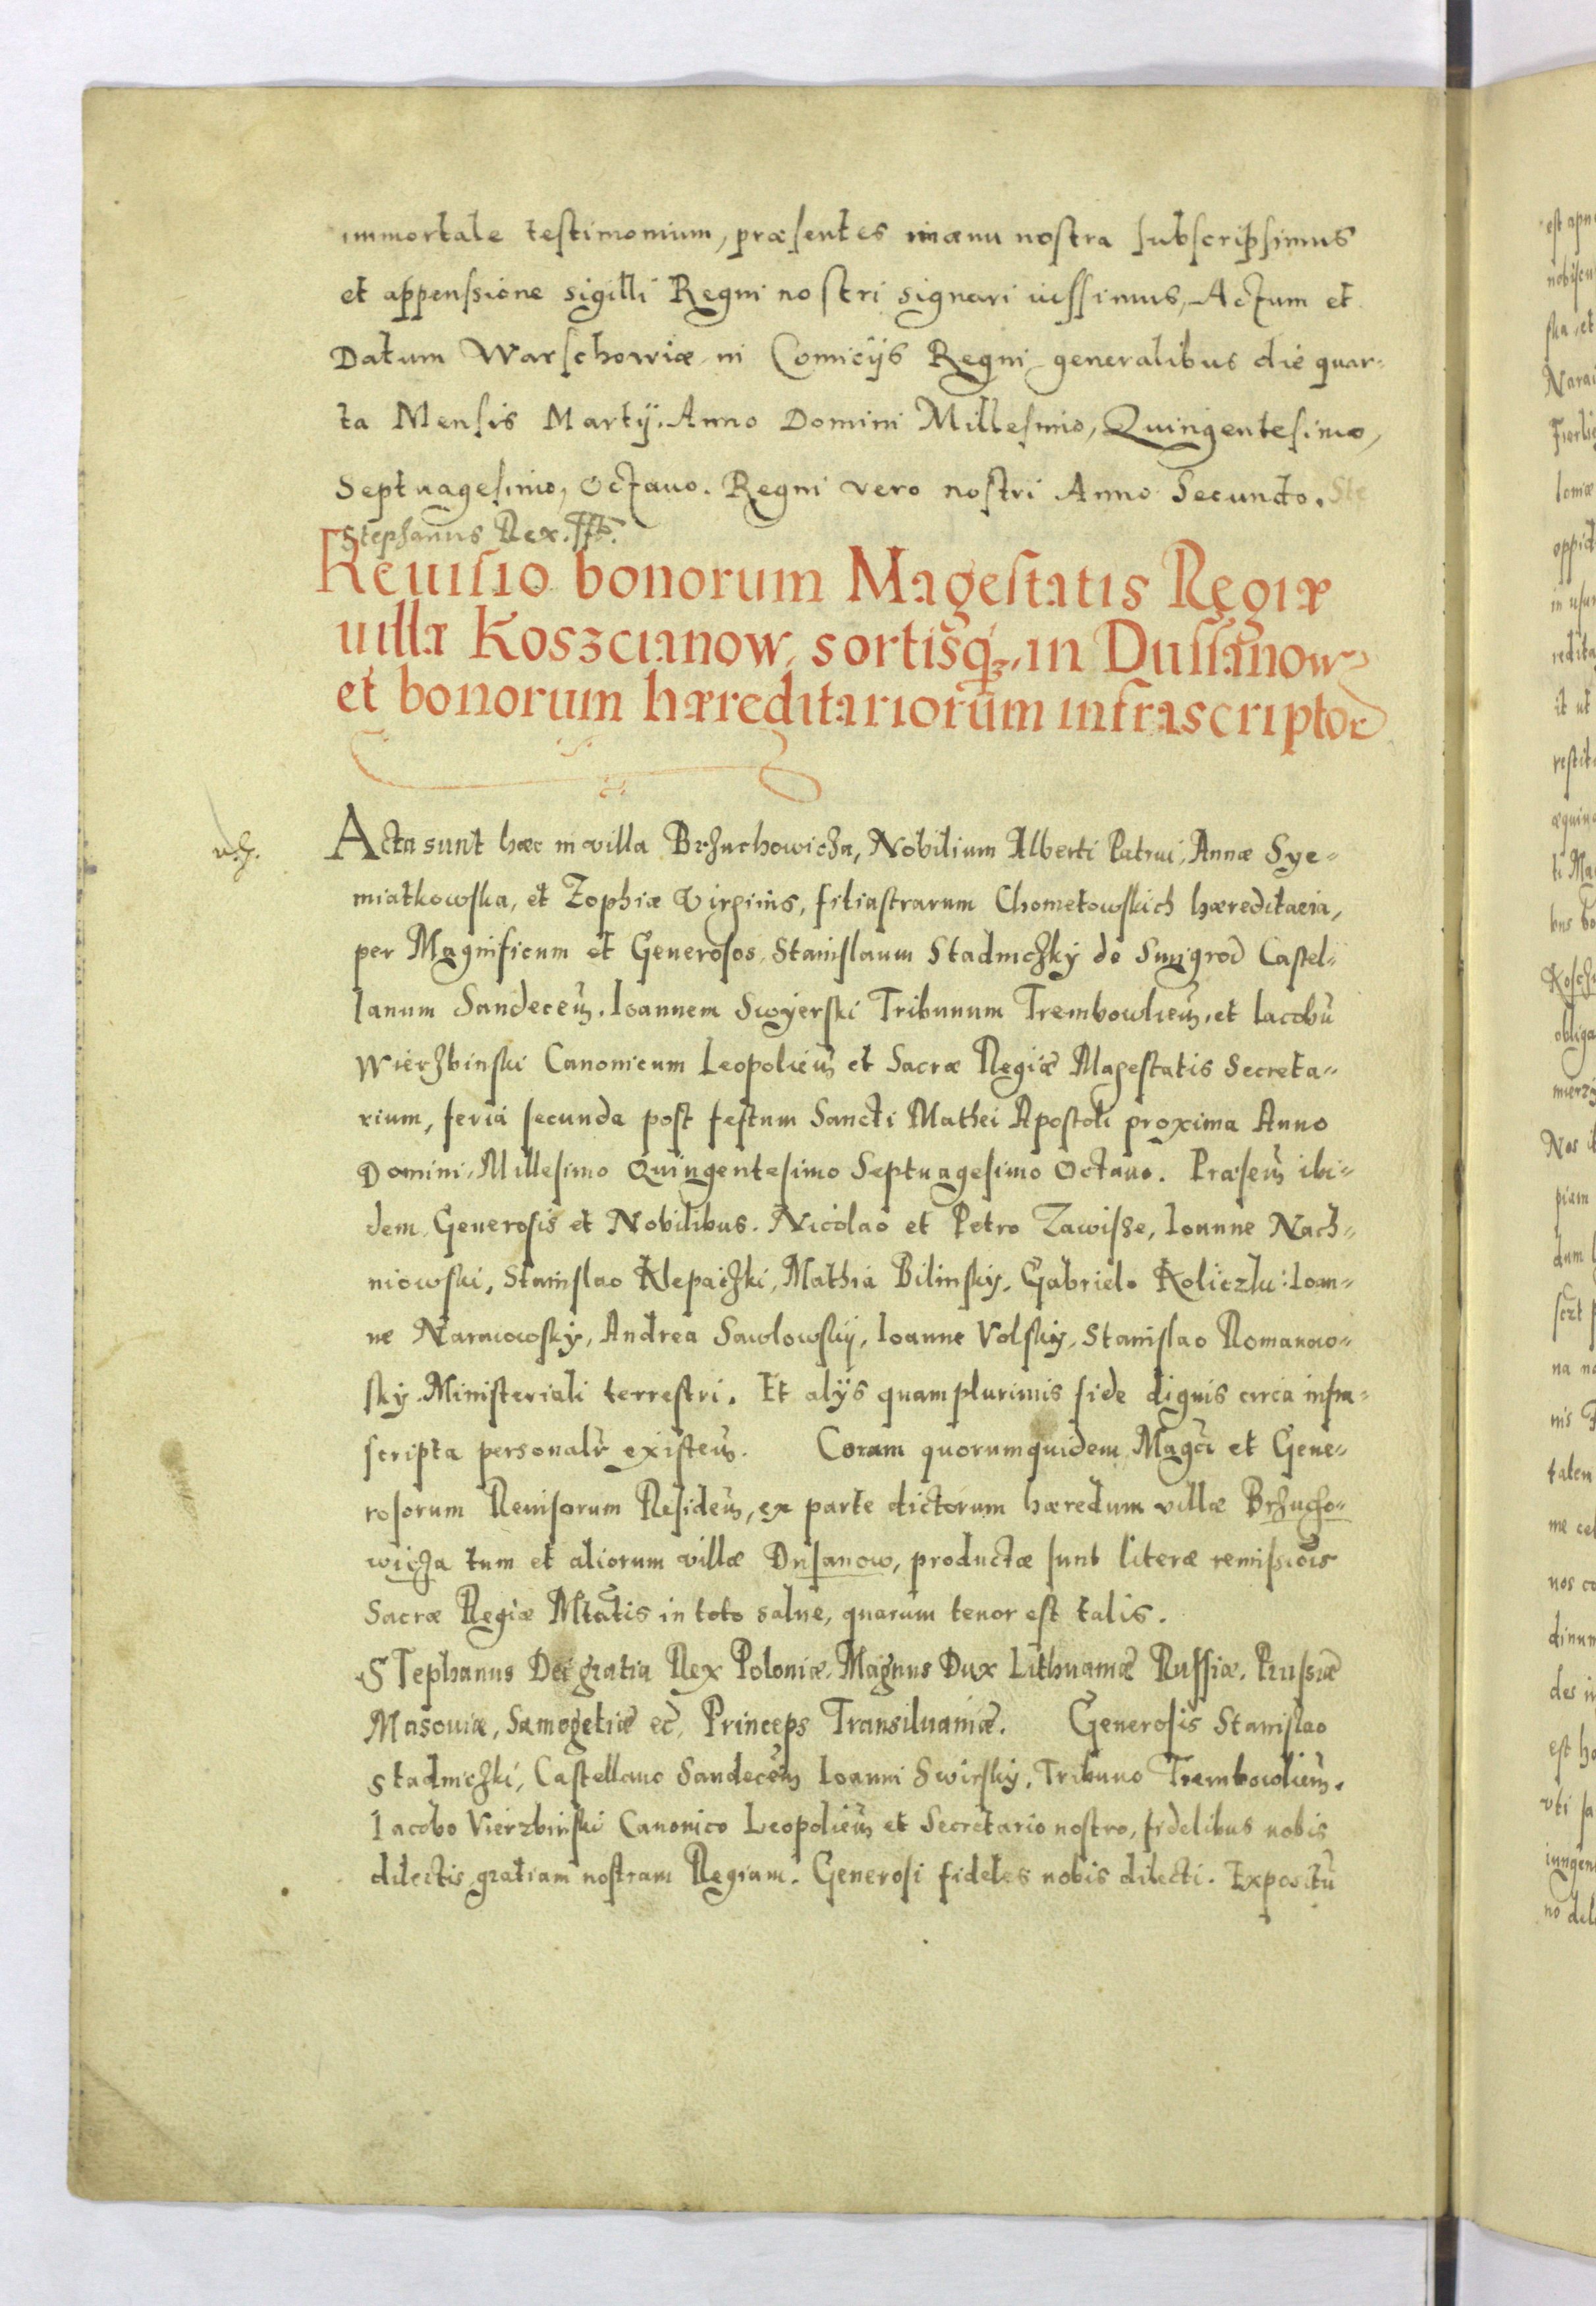 immortale testimonium, præsentes manu nostra subscripsimus
et appensione sigilli Regni nostri signari iussimus, Actum et
Datum Warschowiæ in Comicijs Regni generalibus die quar=
ta Mensis Martij. Anno Domini Millesimo, Quingentesimo,
Septuagesimo, Octauo. Regni vero nostri Anno Secundo. Ste
Stephanus Rex. sst.
Reuisio bonorum Magestatis Regiæ
uillæ Koszcianow, sortisq; in Dussanow
et bonorum hæreditariorum infrascriptor
Acta sunt hæc in villa Brzuchowicza, Nobilium Alberti Patrui, Annæ Sye=
miatkowska, et Zophiæ Virginis, filiastrarum Chometowskich hæreditaria,
per Magnificum et Generosos, Stanislaum Stadniczky de Smigrod Castel=
lanum Sandeceñ. Ioannem Swyerski Tribunum Trembowlieñ, et Iacobū
Wierzbinski Canonicum Leopolieñ et Sacræ Regiæ Magestatis Secreta=
rium, feria secunda post festum Sancti Mathei Apostoli proxima Anno
Domini, Millesimo Quingentesimo Septuagesimo Octauo. Præseñ ibi=
dem, Generosis et Nobilibus. Nicolao et Petro Zawisse, Ioanne Nach=
niowski, Stanislao Klepaczki, Mathia Bilinsky, Gabriele Koliczlu: Ioan=
ne Naraiowsky, Andrea Sawlowskij, Ioanne Volskij, Stanislao Romanow=
sky Ministeriali terrestri. Et alijs quamplurimis fide dignis circa infra=
scripta personalr existeñ. Coram quorumquidem Magcı et Gene=
rosorum Reuisorum Resideñ, ex parte dictorum hæredum villæ Brzucho=
wicza tum et aliorum villæ Dusanow, productæ sunt literæ remissiois
Sacræ Regiæ Mtatis in toto salue, quarum tenor est talis.
STephanus Dei gratia Rex Poloniæ, Magnus Dux Lithuaniæ Russiæ, Prussiæ
Masouiæ, Samogetiæ ec, Princeps Transiluaniæ. Generosis Stanislao
Stadniczki, Castellano Sandeceñ Ioanni Swirsky, Tribuno Trembowlieñ,
Iacobo Vierzbinski Canonico Leopolieñ et Secretario nostro, fidelibus nobis
dilectis, gratiam nostram Regiam. Generosi fideles nobis dilecti. Expositū